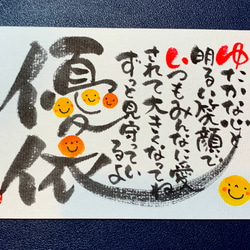 ゆたかな心と
明るい笑顔で
いつもみんなに愛
されて大きくなってね
ずっと見守っているよ
優依